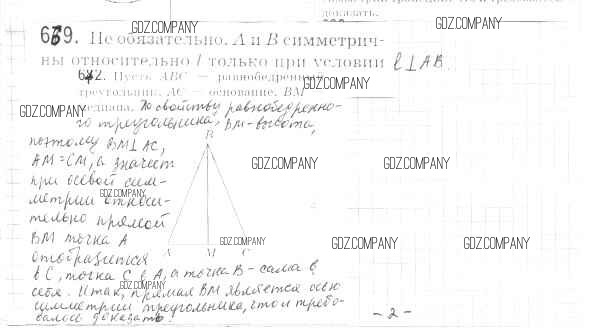 доказать.
GDZ.COMPANY
GDZ.COMPANY
639. Не обязательно. A и B симметрич-
ны относительно l только при условии l⊥AB.
GDZ.COMPANY
642. Пусть ABC — равнобедренный
треугольник, AC — основание, BM
GDZ.COMPANY
медиана. По свойству равнобедренно-
го треугольника, BM-высота,
поэтому BM⊥AC,
B
AM=CM, а значит
GDZ.COMPANY
GDZ.COMPANY
при осевой сим-
GDZ.COMPANY
метрии относи-
тельно прямой
BM точка A
A M C
GDZ.COMPANY
GDZ.COMPANY
GDZ.COMPANY
отобразится
в C, точка C в A, а точка B - сама в
GDZ.COMPANY
себя. Итак, прямая BM является осью
симметрии треугольника, что и требо-
валось доказать.
-2-